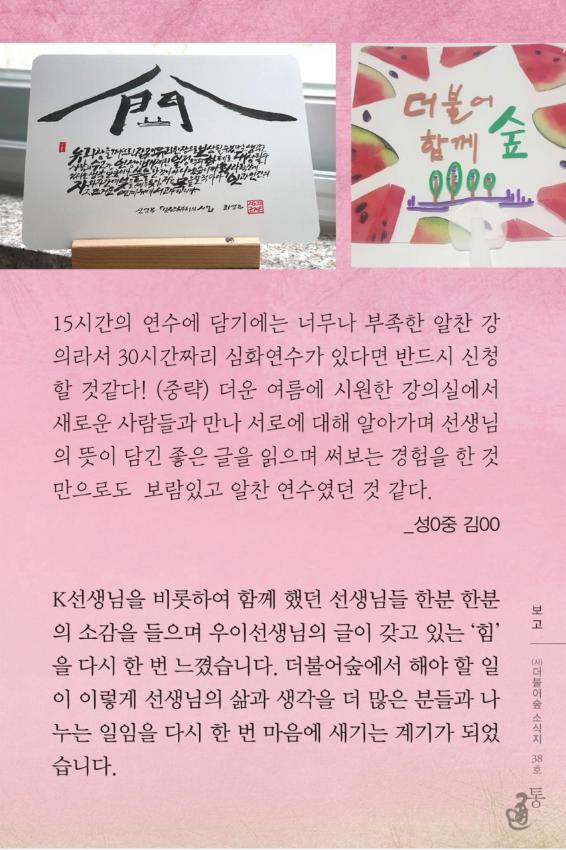 더불어
함께 숲
15시간의 연수에 담기에는 너무나 부족한 알찬 강
의라서 30시간짜리 심화연수가 있다면 반드시 신청
할 것같다! (중략) 더운 여름에 시원한 강의실에서
새로운 사람들과 만나 서로에 대해 알아가며 선생님
의 뜻이 담긴 좋은 글을 읽으며 써보는 경험을 한 것
만으로도 보람있고 알찬 연수였던 것 같다.
_성0중 김00
K선생님을 비롯하여 함께 했던 선생님들 한분 한분
의 소감을 들으며 우이선생님의 글이 갖고 있는 ‘힘’
을 다시 한 번 느꼈습니다. 더불어숲에서 해야 할 일
이 이렇게 선생님의 삶과 생각을 더 많은 분들과 나
누는 일임을 다시 한 번 마음에 새기는 계기가 되었
습니다.
보고
(사)더불어숲 소식지 38호
통